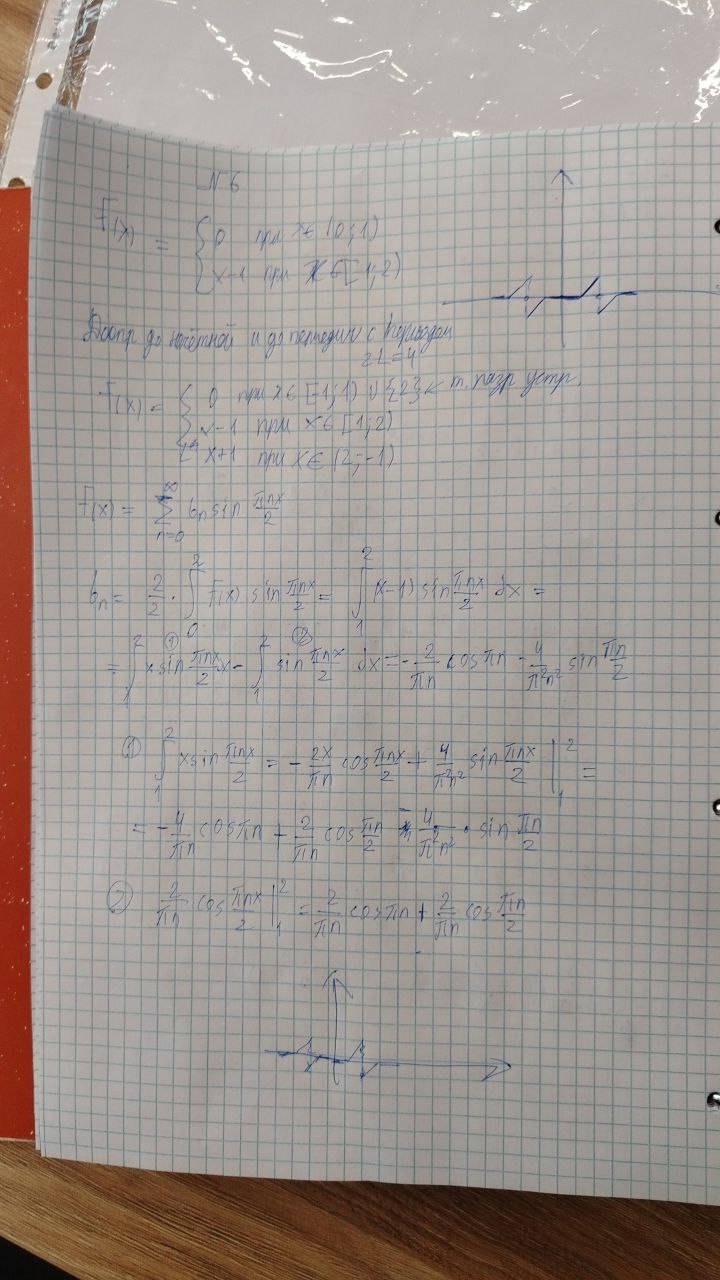 N 6
F(x) = { 0 при x ∈ (0;1)
x-1 при x ∈ [1;2)
до нечётной и до с периодом
2L=4
F(x) = { 0 при x ∈ [-1;1) ∪ {2} ← т. разр устр.
x-1 при x ∈ [1;2)
x+1 при x ∈ (2;-1)
F(x) = ∑_{n=0}^{∞} b_n sin πnx/2
b_n = 2/2 · ∫_0^2 F(x) sin πnx/2 = ∫_1^2 (x-1) sin πnx/2 dx =
= ∫_1^2 ① x sin πnx/2 dx - ∫_1^2 ② sin πnx/2 dx = - 2/πn cos πn - 4/π²n² sin πn/2
① ∫_1^2 x sin πnx/2 = - 2x/πn cos πnx/2 + 4/π²n² sin πnx/2 |_1^2 =
= - 4/πn cos πn + 2/πn cos πn/2 - 4/π²n² · sin πn/2
② 2/πn cos πnx/2 |_1^2 = 2/πn cos πn + 2/πn cos πn/2